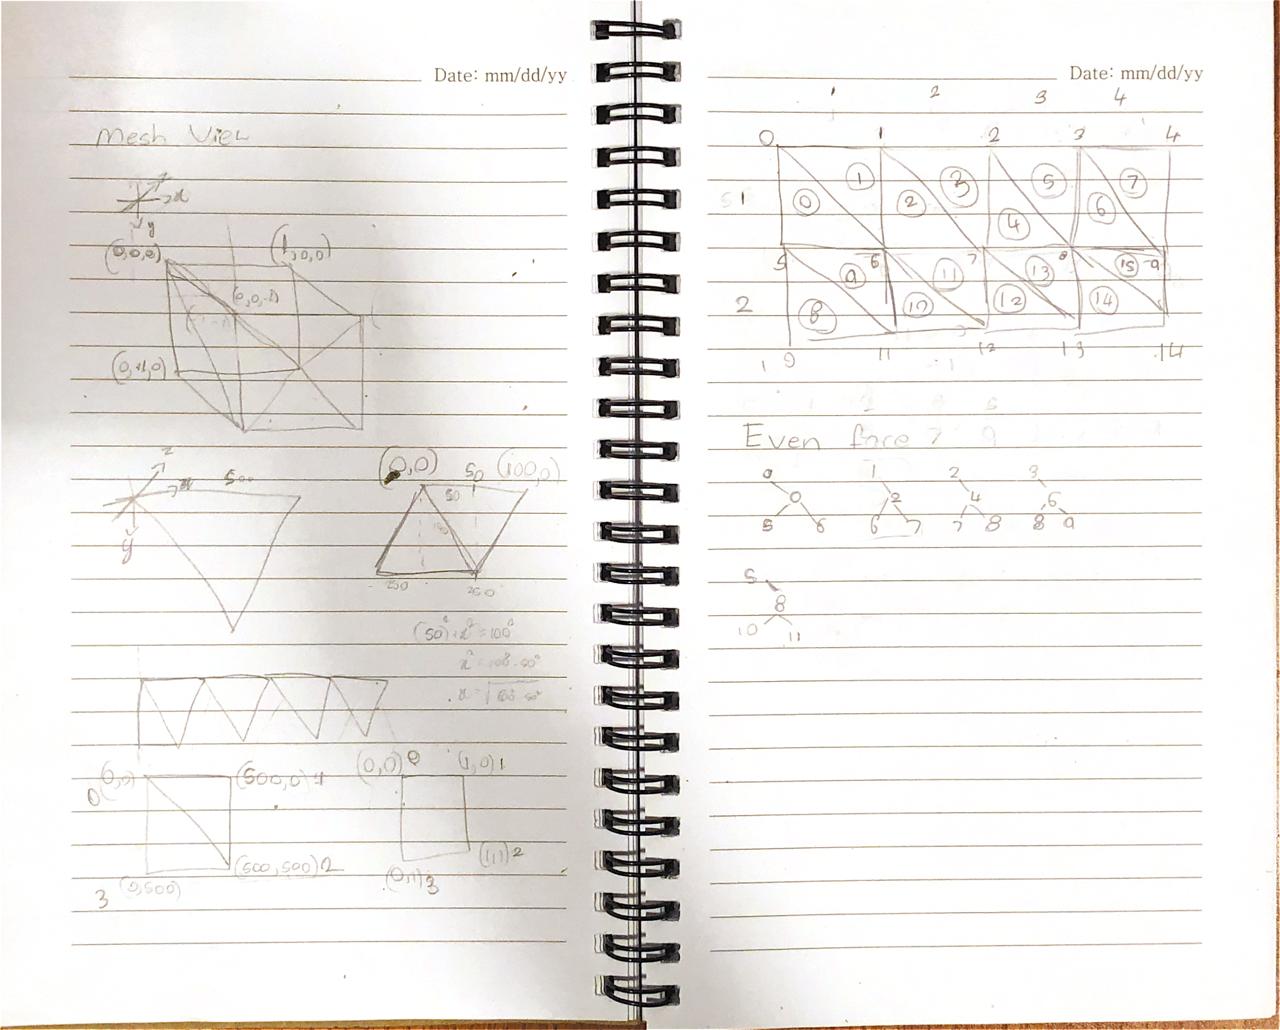 Date: mm/dd/yy
Mesh View
x
y
(0,0,0)
(1,0,0)
(0,0,-1)
(0,+1,0)
z
x
500
y
(0,0)
50
(100,0)
50
-250
250
(50)²+x²=100²
(0,0)
0
(500,0) 1
(500,500) 2
3
(0,500)
(0,0) 0
(1,0) 1
(1,1) 2
(0,1) 3
Date: mm/dd/yy
1 2 3 4
0 1 2 3 4
1
0 1 2 3 4 5 6 7
5 6 7 8 9
2
8 9 10 11 12 13 14 15
10 11 12 13 14
Even face
0 1 2 3
0 2 4 6
5 6 6 7 7 8 8 9
5
8
10 11